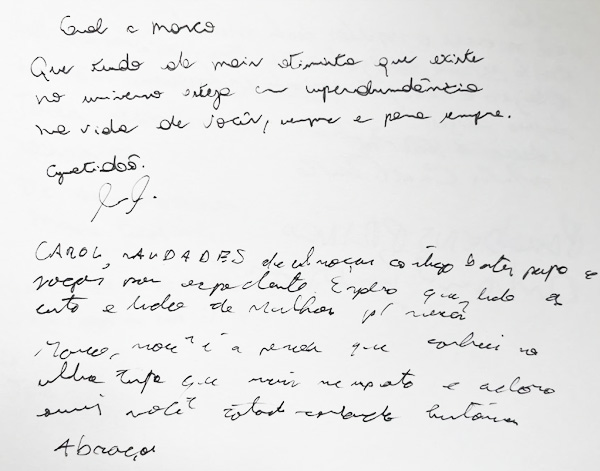 Carol e Marco
Que tudo de mais otimista que existe
no universo esteja em superabundância
na vida de vocês, sempre e para sempre.
Gratidão.
CAROL, SAUDADES de almoçar contigo bater papo e
por expediente. Espero que tudo
certo e tudo de melhor p/
Marco, você é a pessoa que conheci no
que mais respeito e adoro
ouvir você contando histórias
Abraços